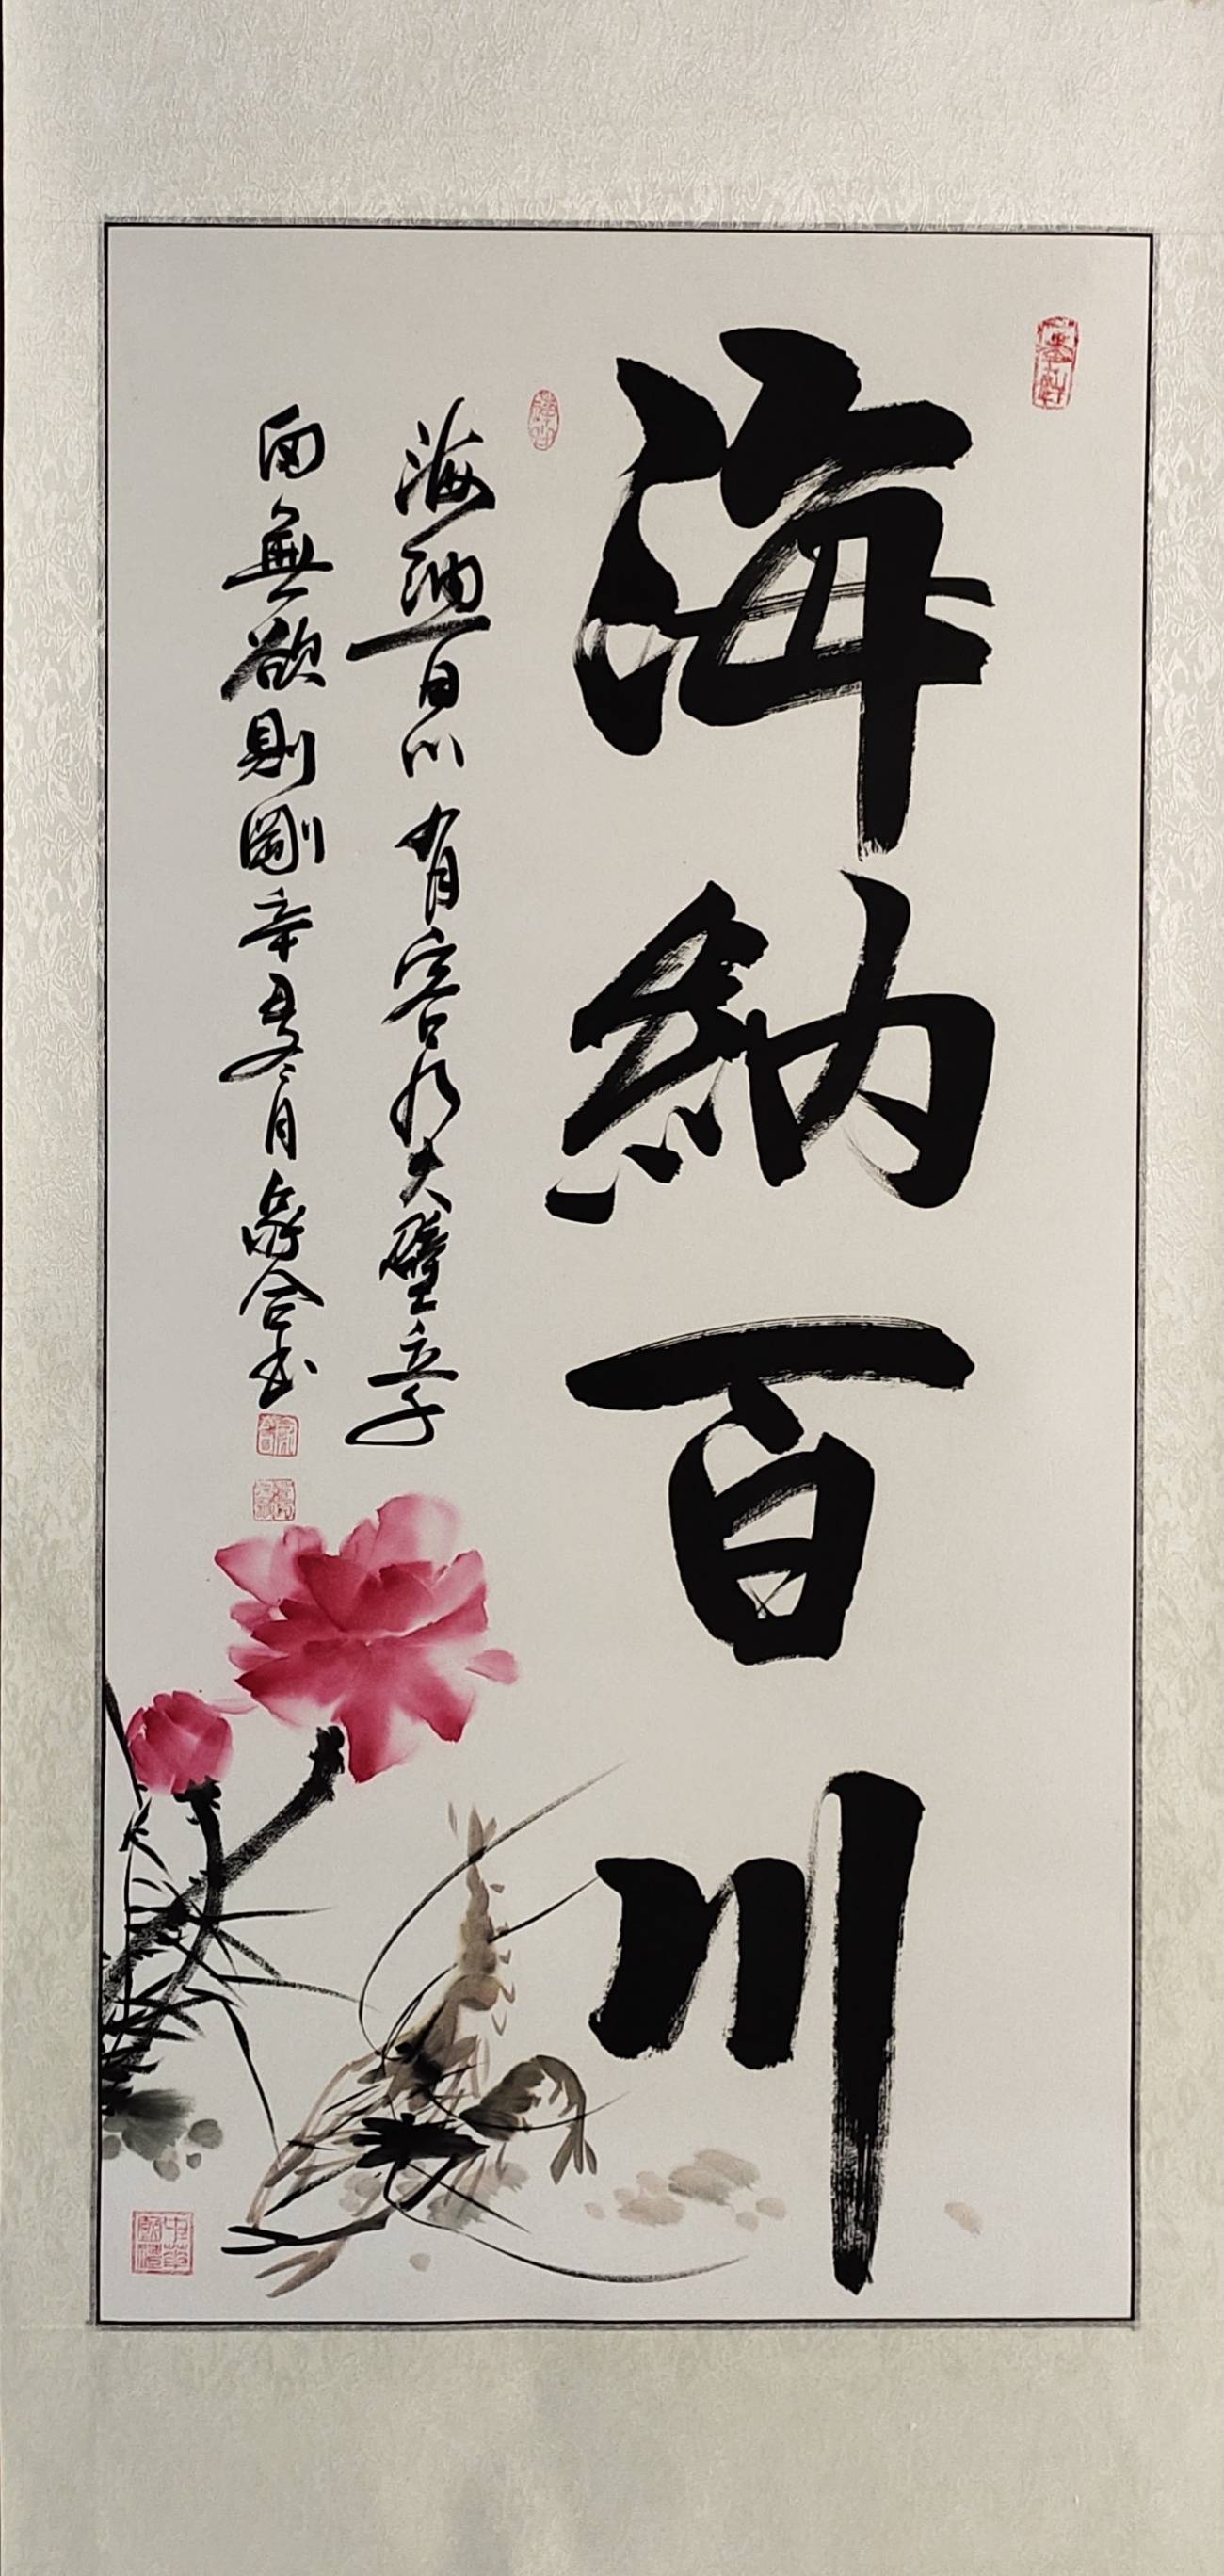 海納百川
海納百川有容乃大壁立千
無欲則剛辛丑冬月合书